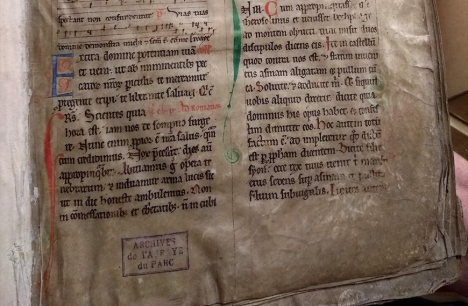 petant non confundentur Vias tuas
domine demonstra michi & semitas tuas edoce me
Excita domine potentiam tuam
et veni. ut ab imminentibus pec
catorum nrorum periculis te mereamur
protegente eripi. te liberante salvari. Qui
Scientes quia ad Romanos
hora est. iam nos de sompno surge
re. Nunc enim propior est nra salus. quam
cum credidimus. Nox precessit. dies aut
appropinqbit. Abiciamus ergo opera te
nebrarum. & induamur arma lucis. sic
ut in die honeste ambulemus. Non
in comessationibus et ebrietatibus. non in cubi
ARCHIVES
de l'ABBAYE
du PARC
Cum appropinquasset
iherosolimis et venisset bethphage
ad montem oliveti misit duos
discipulos dicens eis. Ite in castellum
quod contra vos est. & statim invenietis
asinam alligatam et pullum cum
ea. Solvite & adducite michi. Et siquis
vobis aliquid dixerit. dicite quia
dominus his opus habet. et confes
tim dimittet eos. Hoc autem totum
factum est. ut impleretur qd dictum
est per prophetam dicentem. Dicite filie
syon. ecce rex tuus venit tibi mansu
etus sedens super asinam et pullum
filium subiugalis. Euntes autem